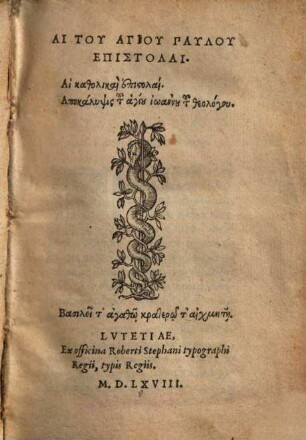 ΑΙ ΤΟΥ ΑΓΙΟΥ ΠΑΥΛΟΥ
ΕΠΙΣΤΟΛΑΙ.
Αἱ καθολικαὶ ἐπιστολαί.
Ἀποκάλυψις τοῦ ἁγίου ἰωάννου τοῦ θεολόγου.
Βασιλεῖ τ' ἀγαθῷ κρατερῷ τ' αἰχμητῇ.
LVTETIAE,
Ex officina Roberti Stephani typographi
Regii, typis Regiis.
M. D. LXVIII.